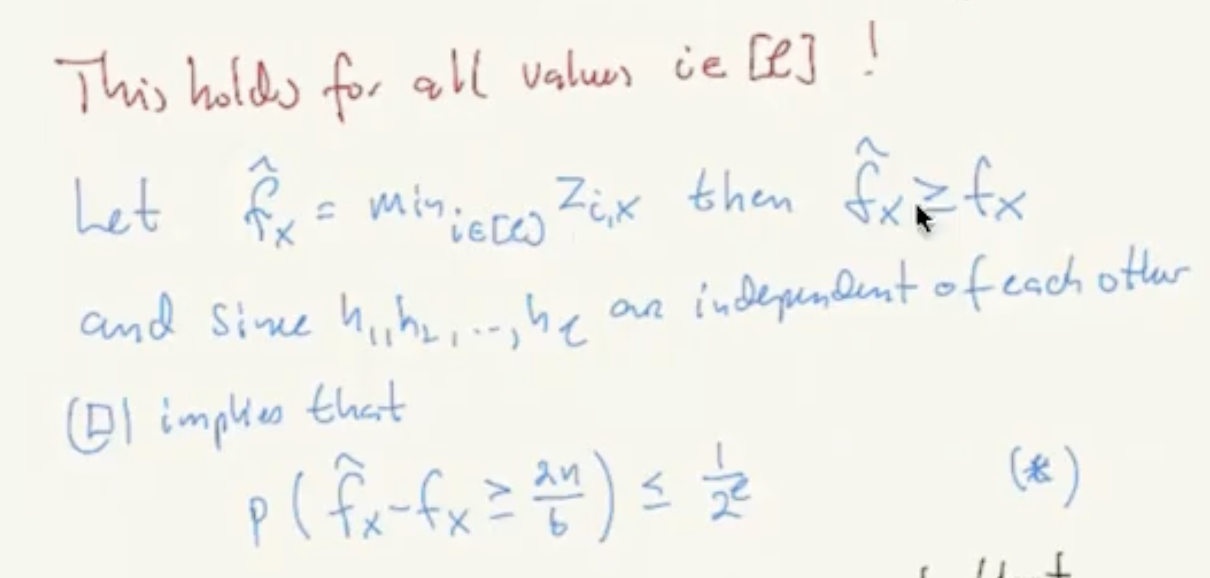 This holds for all values i∈[ℓ] !
Let f̂ₓ = min_{i∈[ℓ]} Z_{i,x} then f̂ₓ ≥ fₓ
and since h₁,h₂,...,h_ℓ are independent of each other
(□) implies that
P( f̂ₓ-fₓ ≥ 2n/b ) ≤ 1/2^ℓ (*)